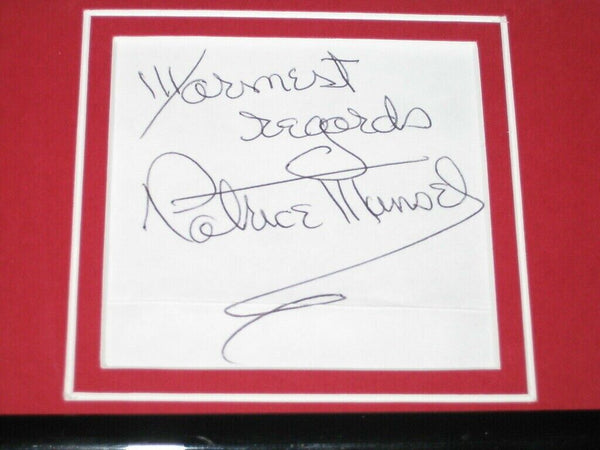 Warmest
regards
Patrice Munsel